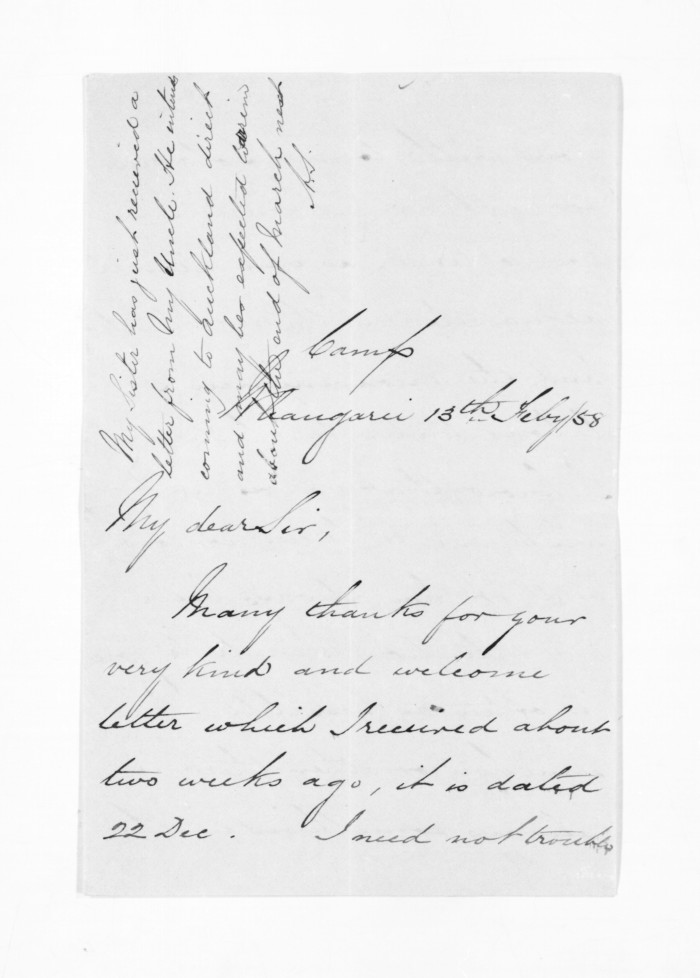 My Sister has just received a
letter from My Uncle. He intends
coming to Auckland direct
and may be expected
about the end of March next
Camp
Whangarei 13th Feby/58
My dear Sir,
Many thanks for your
very kind and welcome
letter which I received about
two weeks ago, it is dated
22 Dec. I need not trouble